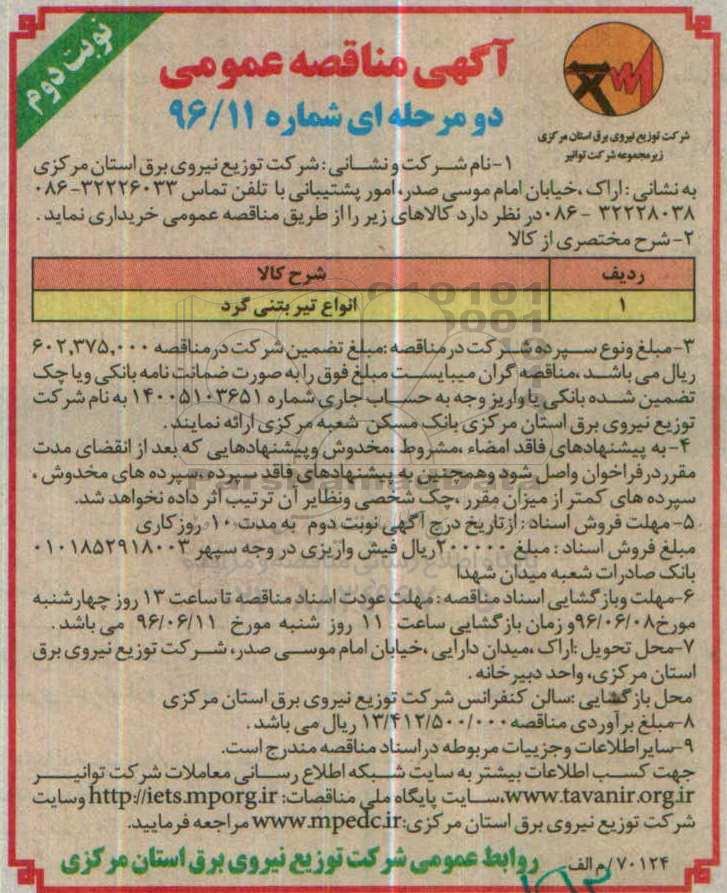 نوبت دوم
آگهی مناقصه عمومی
دو مرحله ای شماره ۹۶/۱۱
شرکت توزیع نیروی برق استان مرکزی
زیرمجموعه شرکت توانیر
۱-نام شرکت و نشانی : شرکت توزیع نیروی برق استان مرکزی
به نشانی : اراک ،خیابان امام موسی صدر، امور پشتیبانی با تلفن تماس ۳۲۲۲۶۰۳۳-۰۸۶
۳۲۲۲۸۰۳۸ -۰۸۶ در نظر دارد کالاهای زیر را از طریق مناقصه عمومی خریداری نماید .
۲-شرح مختصری از کالا
ردیف شرح کالا
۱ انواع تیر بتنی گرد
۳-مبلغ ونوع سپرده شرکت در مناقصه :مبلغ تضمین شرکت در مناقصه ۶۰۲,۳۷۵,۰۰۰
ریال می باشد ،مناقصه گران میبایست مبلغ فوق را به صورت ضمانت نامه بانکی ویا چک
تضمین شده بانکی یا واریز وجه به حساب جاری شماره ۱۴۰۰۵۱۰۳۶۵۱ به نام شرکت
توزیع نیروی برق استان مرکزی بانک مسکن شعبه مرکزی ارائه نمایند .
۴- به پیشنهادهای فاقد امضاء ،مشروط ،مخدوش وپیشنهادهایی که بعد از انقضای مدت
مقرر در فراخوان واصل شود وهمچنین به پیشنهادهای فاقد سپرده ،سپرده های مخدوش ،
سپرده های کمتر از میزان مقرر ،چک شخصی ونظایر آن ترتیب اثر داده نخواهد شد.
۵- مهلت فروش اسناد : از تاریخ درج آگهی نوبت دوم به مدت ۱۰ روز کاری
مبلغ فروش اسناد : مبلغ ۲۰۰۰۰۰ریال فیش واریزی در وجه سپهر ۰۱۰۱۸۵۲۹۱۸۰۰۳
بانک صادرات شعبه میدان شهدا
۶-مهلت وبازگشایی اسناد مناقصه : مهلت عودت اسناد مناقصه تا ساعت ۱۳ روز چهارشنبه
مورخ۹۶/۰۶/۰۸و زمان بازگشایی ساعت ۱۱ روز شنبه مورخ ۹۶/۰۶/۱۱ می باشد .
۷-محل تحویل :اراک ،میدان دارایی ،خیابان امام موسی صدر، شرکت توزیع نیروی برق
استان مرکزی، واحد دبیرخانه .
محل بازگشایی :سالن کنفرانس شرکت توزیع نیروی برق استان مرکزی
۸-مبلغ برآوردی مناقصه ۱۳/۴۱۲/۵۰۰/۰۰۰ ریال می باشد .
۹-سایر اطلاعات وجزییات مربوطه در اسناد مناقصه مندرج است.
جهت کسب اطلاعات بیشتر به سایت شبکه اطلاع رسانی معاملات شرکت توانیر
www.tavanir.org.ir،سایت پایگاه ملی مناقصات: http://iets.mporg.ir وسایت
شرکت توزیع نیروی برق استان مرکزی:www.mpedc.ir مراجعه فرمایید.
۷۰۱۲۴/م الف
روابط عمومی شرکت توزیع نیروی برق استان مرکزی